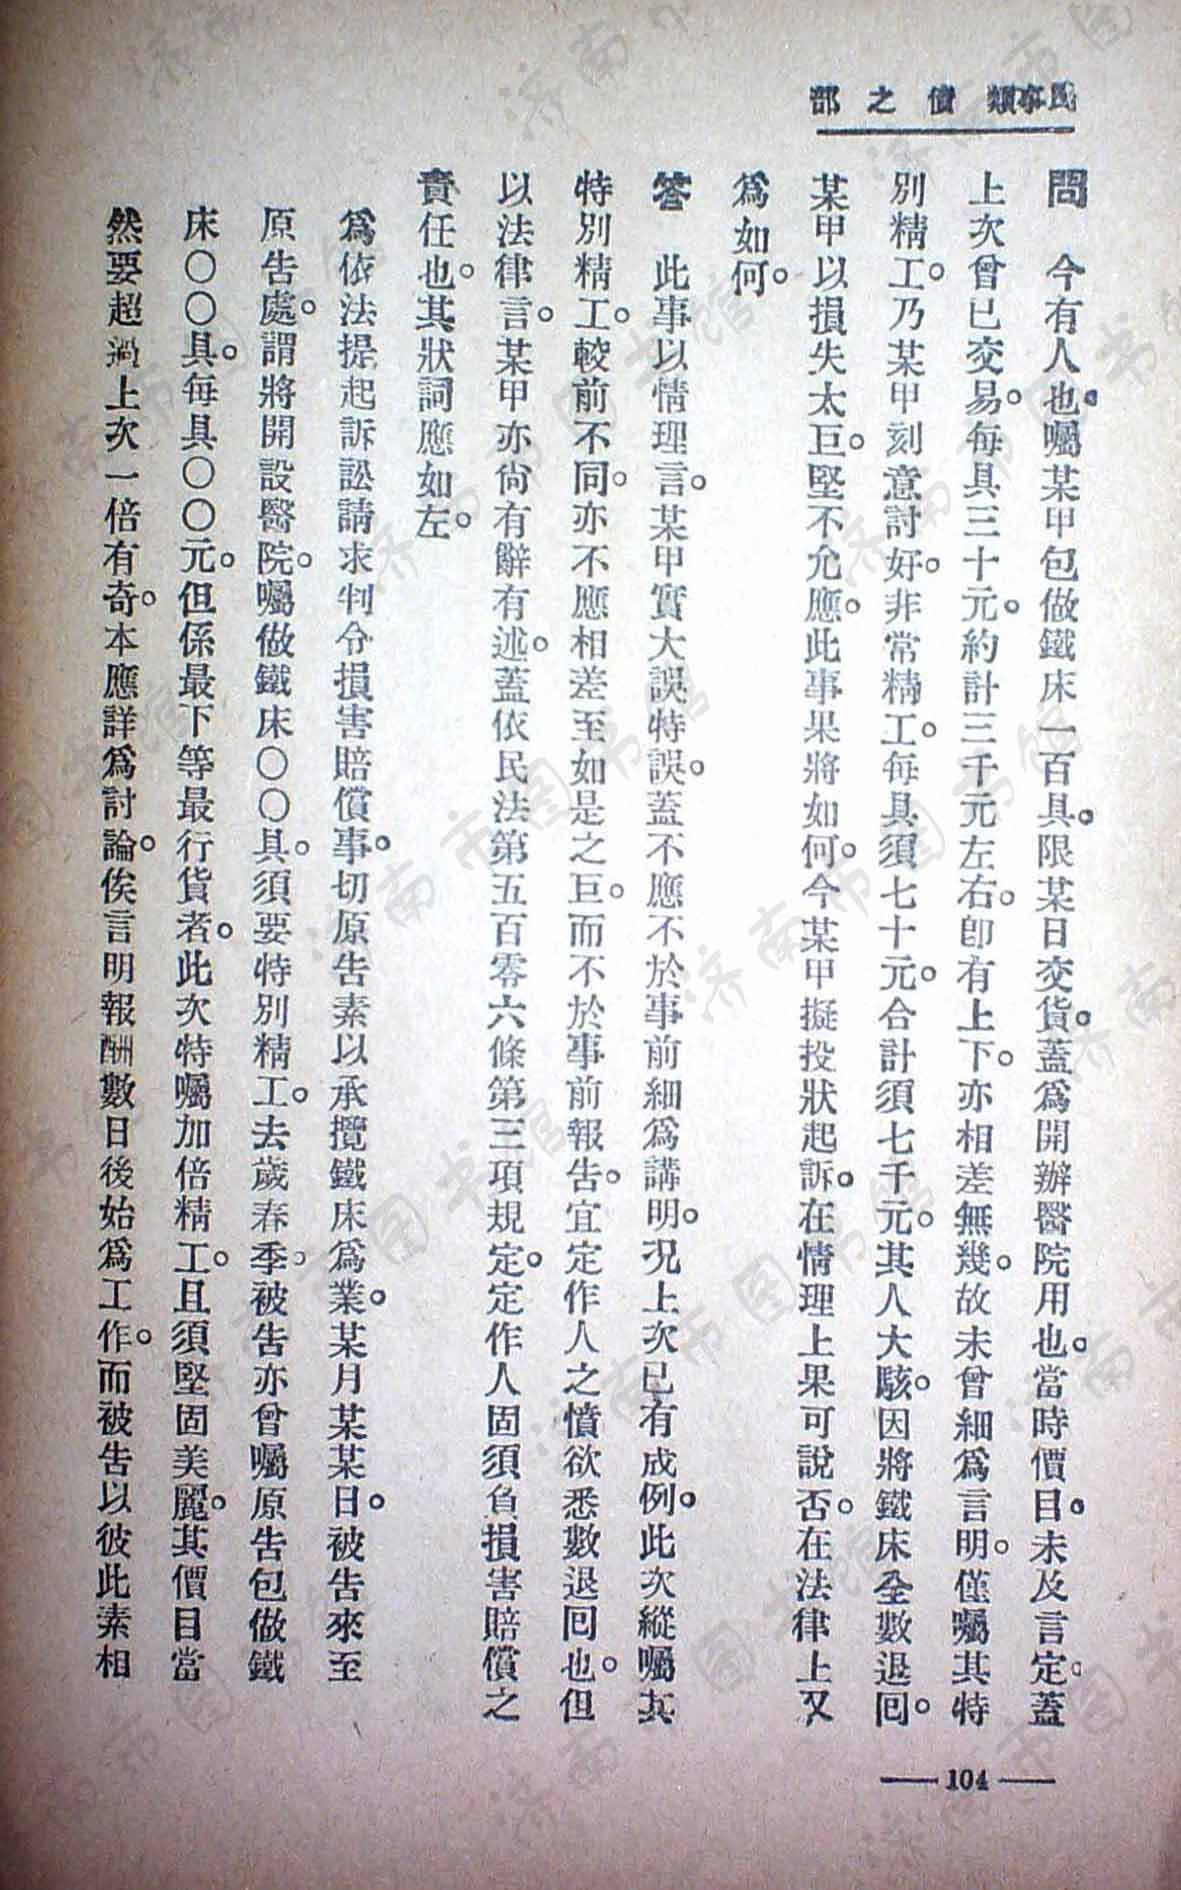 民事類 債之部
問　今有人也。囑某甲包做鐵床一百具。限某日交貨。蓋爲開辦醫院用也。當時價目。未及言定。蓋
上次曾已交易。每具三十元。約計三千元左右。卽有上下。亦相差無幾。故未曾細爲言明。僅囑其特
別精工。乃某甲刻意討好。非常精工。每具須七十元。合計須七千元。其人大駭。因將鐵床全數退回。
某甲以損失太巨。堅不允應。此事果將如何。今某甲擬投狀起訴。在情理上果可說否。在法律上又
爲如何。
答　此事以情理言。某甲實大誤特誤。蓋不應不於事前細爲講明。况上次已有成例。此次縱囑其
特別精工。較前不同。亦不應相差至如是之巨。而不於事前報告。宜定作人之憤欲悉數退回也。但
以法律言。某甲亦尙有辭有述。蓋依民法第五百零六條第三項規定。定作人固須負損害賠償之
責任也。其狀詞應如左。
爲依法提起訴訟請求判令損害賠償事。切原告素以承攬鐵床爲業。某月某某日。被告來至
原告處。謂將開設醫院。囑做鐵床〇〇具。須要特別精工。去歲春季。被告亦曾囑原告包做鐵
床〇〇具。每具〇〇元。但係最下等最行貨者。此次特囑加倍精工。且須堅固美麗。其價目當
然要超過上次一倍有奇。本應詳爲討論。俟言明報酬數目後始爲工作。而被告以彼此素相
—104—
济南市图书馆